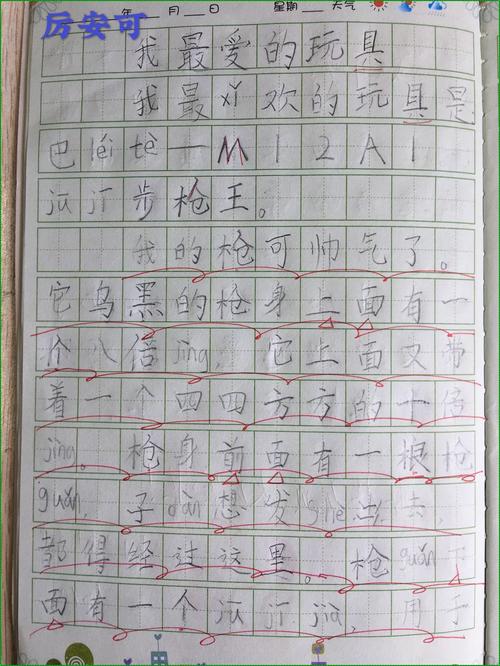 年 月 日 星期 天气
厉安可
我最爱的玩具
我最xǐ欢的玩具是
巴léitè一M12A1
jūjī步枪王。
我的枪可帅气了。
它乌黑的枪身上面有一
个八倍jìng,它上面又带
着一个四四方方的十倍
jìng。枪身前面有一根枪
guǎn,子dàn想发shè出去,
都得经过这里。枪guǎn下
面有一个jūjījià,用于